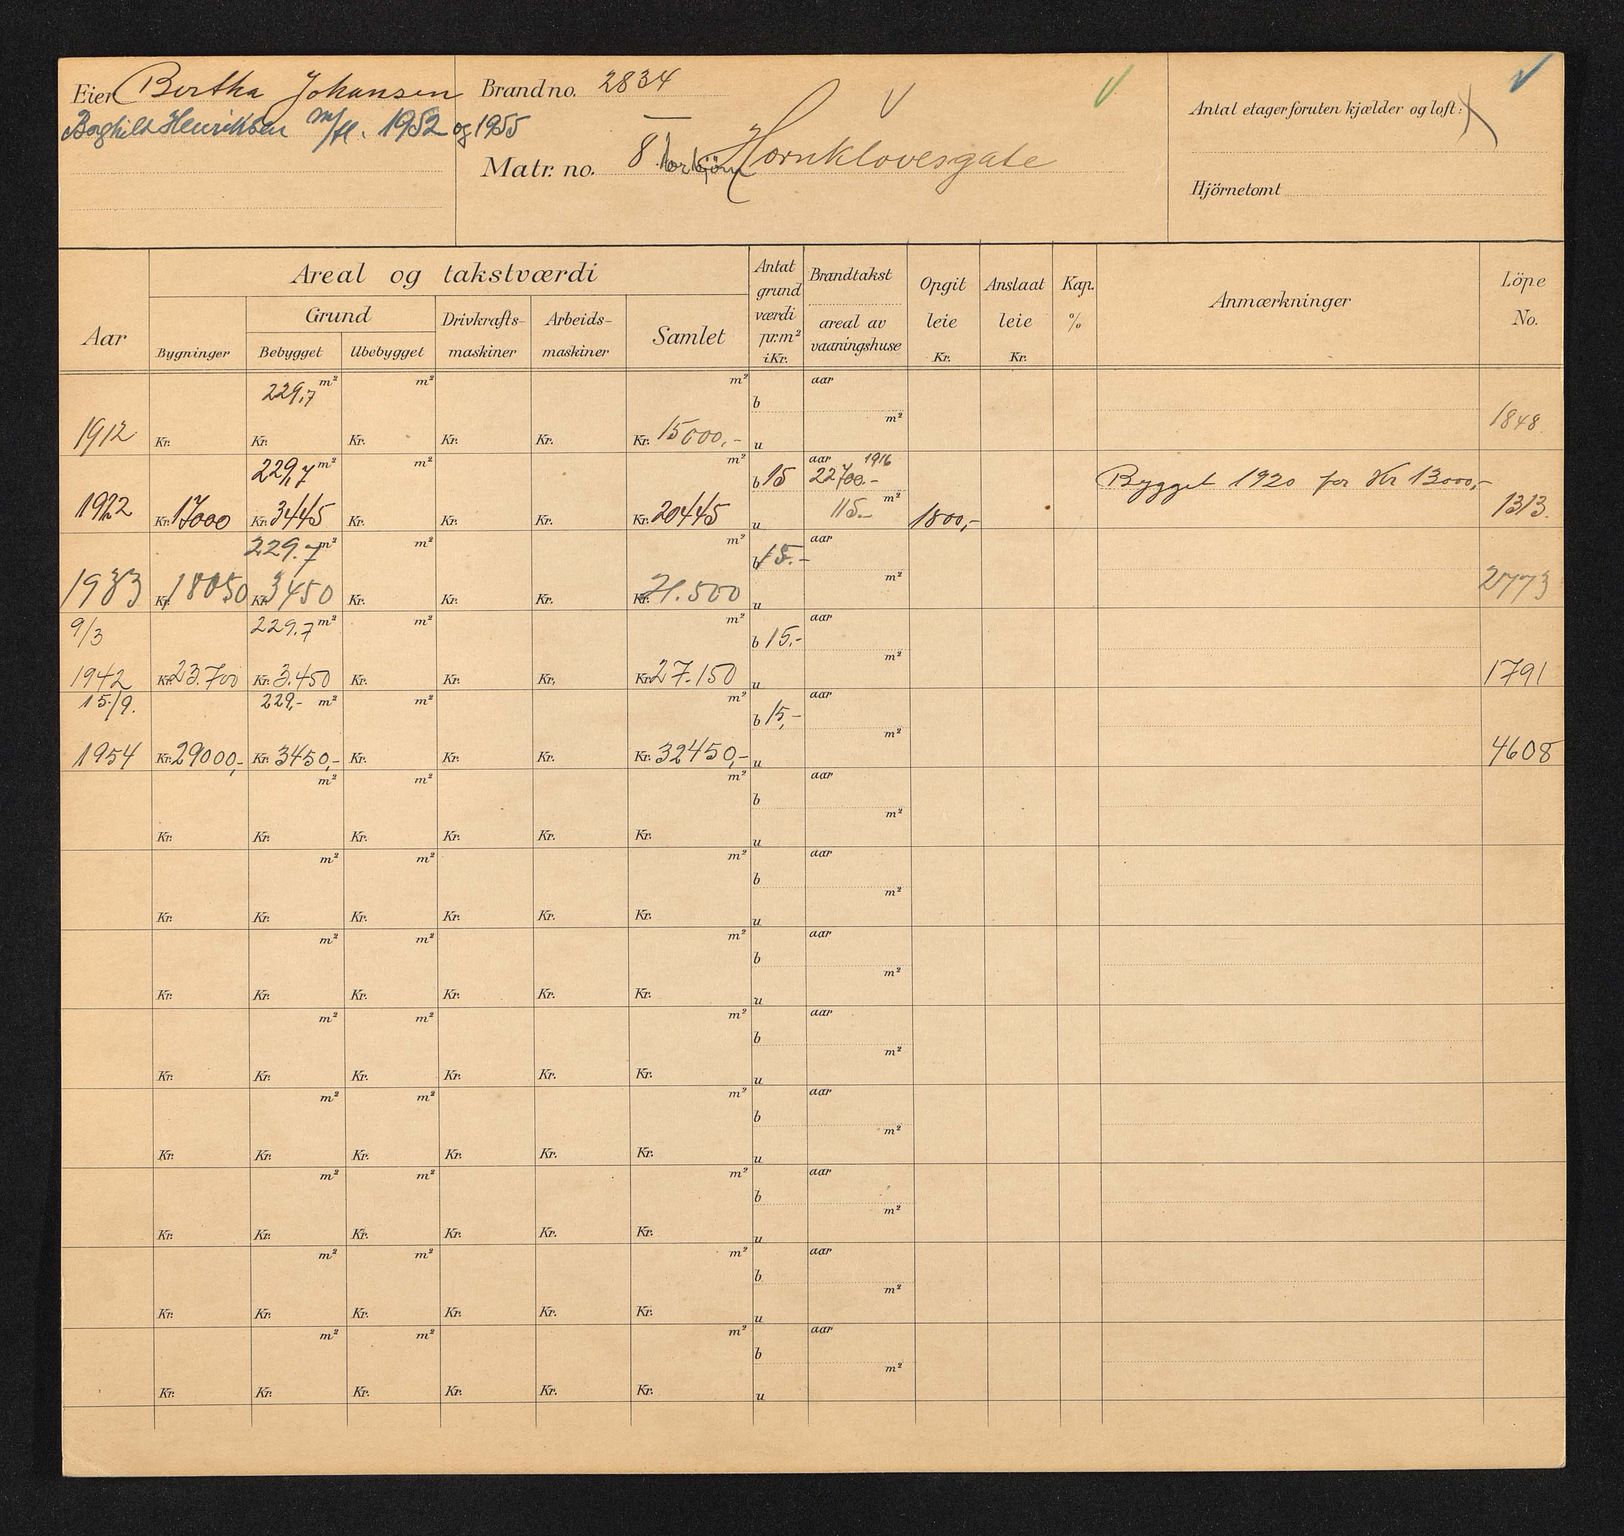 Eier Bertha Johansen
Borghild Henriksen m/fl. 1952 og 1955
Brand no. 2834
Matr. no. 8 Torbjörn Hornklovesgate
Antal etager foruten kjælder og loft:
Hjörnetomt
Aar
Areal og takstværdi
Bygninger
Grund
Bebygget Ubebygget
Drivkrafts-maskiner
Arbeids-maskiner
Samlet
Antat grund værdi pr.m² i Kr.
Brandtakst
areal av vaaningshuse
Opgit leie Kr.
Anslaat leie Kr.
Kap. %
Anmærkninger
Löpe No.
229,7 m² m² m² aar
b
m²
1912 Kr. Kr. Kr. Kr. Kr. Kr. 15000,- u 1848.
229,7 m² m² m² aar 1916
b 15 22700.- Bygget 1920 for Kr 13000,-
m²
115.-
1922 Kr. 17000 Kr. 3445 Kr. Kr. Kr. Kr. 20445 u 1800,- 1313.
229.7 m² m² m² aar
b 15.-
m²
1933 Kr. 18050 Kr. 3450 Kr. Kr. Kr. Kr. 21.500 u 2773
9/3 229.7 m² m² m² aar
b 15.-
m²
1942 Kr. 23.700 Kr. 3.450 Kr. Kr. Kr. Kr. 27.150 u 1791
15/9. 229,- m² m² m² aar
b 15,-
m²
1954 Kr. 29000,- Kr. 3450,- Kr. Kr. Kr. Kr. 32450,- u 4608
m² m² m² aar
b
m²
Kr. Kr. Kr. Kr. Kr. Kr. u
m² m² m² aar
b
m²
Kr. Kr. Kr. Kr. Kr. Kr. u
m² m² m² aar
b
m²
Kr. Kr. Kr. Kr. Kr. Kr. u
m² m² m² aar
b
m²
Kr. Kr. Kr. Kr. Kr. Kr. u
m² m² m² aar
b
m²
Kr. Kr. Kr. Kr. Kr. Kr. u
m² m² m² aar
b
m²
Kr. Kr. Kr. Kr. Kr. Kr. u
m² m² m² aar
b
m²
Kr. Kr. Kr. Kr. Kr. Kr. u
m² m² m² aar
b
m²
Kr. Kr. Kr. Kr. Kr. Kr. u